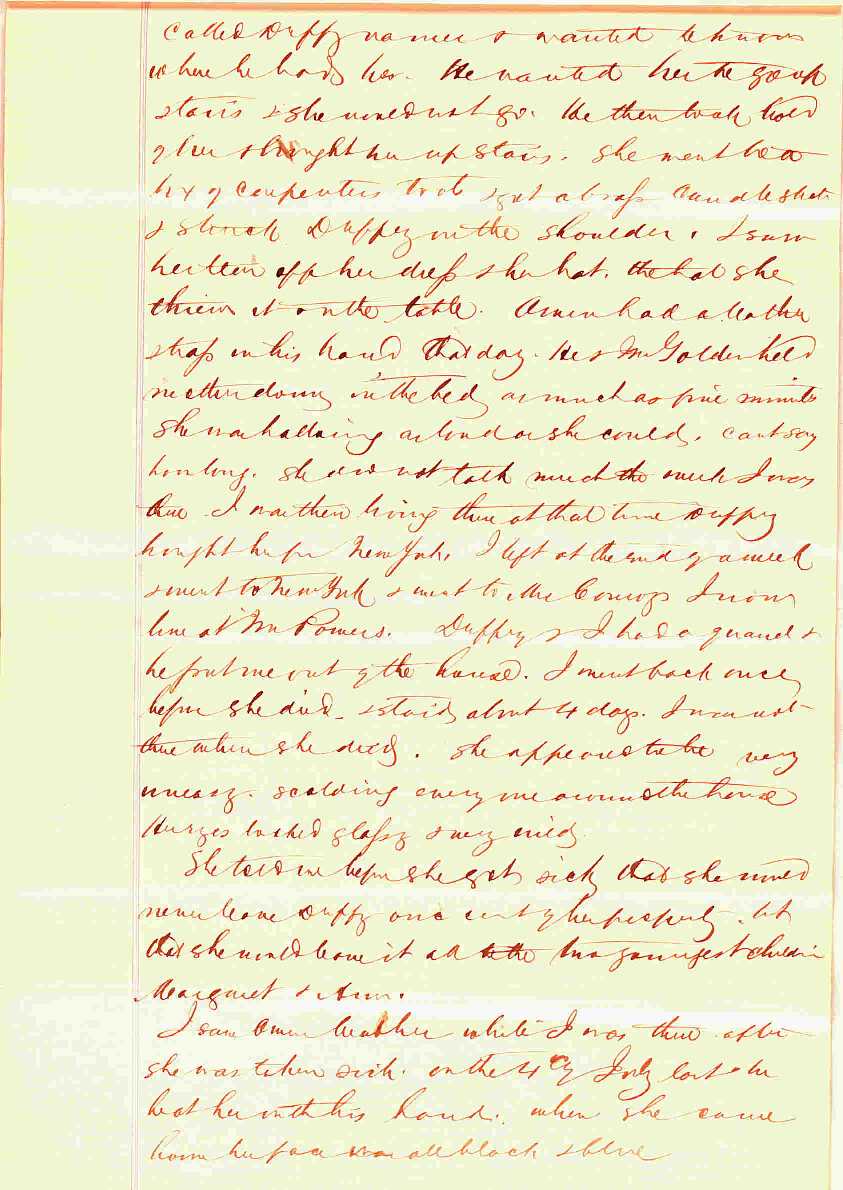 called Duffy names & wanted to know
where he had her. He wanted her to go up
stairs & she would not go. He then took hold
of her & brought her up stairs. She went to a
box of carpenters tools & got a brass candle stick
& struck Duffey on the shoulder. I saw
her tear off her dress & her hat. the hat she
threw it on the table. Owen had a leather
strap in his hand that day. He & Mr Golden held
mother down in the bed as much as five minutes
She was hallooing as loud as she could. cant say
how long. She did not talk much the week I was
there I was then living there at that time Duffey
bought her for New York. I left at the end of a week
& went to New York & went to Mr I now
live at Mr Powers. Duffey & I had a quarrel &
he put me out of the house. I went back once
before she died & staid about 4 days. I was not
there when she died. She appeared to be very
uneasy. scolding every one around the house
Her eyes looked glassy & very wild.
She told me before she got sick that she would
never leave Duffy one cent of her property. but
that she would leave it all to the two youngest children
Margaret & Ann.
I saw Owen beat her while I was there after
she was taken sick. on the 4th of July last he
beat her with his hand. when she came
home her face was all black & blue